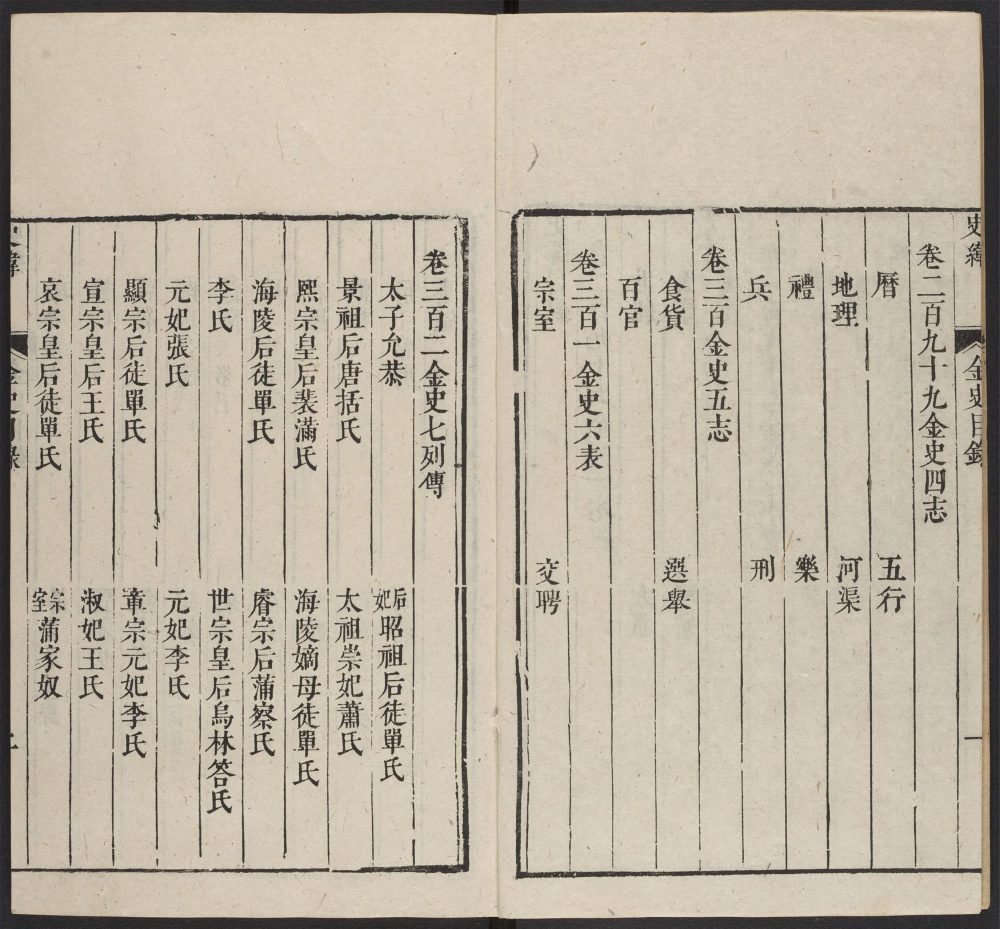 史緯 金史目錄 一
卷二百九十九金史四志
曆 五行
地理 河渠
禮 樂
兵 刑
卷三百金史五志
食貨 選舉
百官
卷三百一金史六表
宗室 交聘
卷三百二金史七列傳
太子允恭 后妃昭祖后徒單氏
景祖后唐括氏 太祖崇妃蕭氏
熙宗皇后裴滿氏 海陵嫡母徒單氏
海陵后徒單氏 睿宗后蒲察氏
李氏 世宗皇后烏林答氏
元妃張氏 元妃李氏
顯宗后徒單氏 章宗元妃李氏
宣宗皇后王氏 淑妃王氏
哀宗皇后徒單氏 宗室蒲家奴
史緯 金史目錄